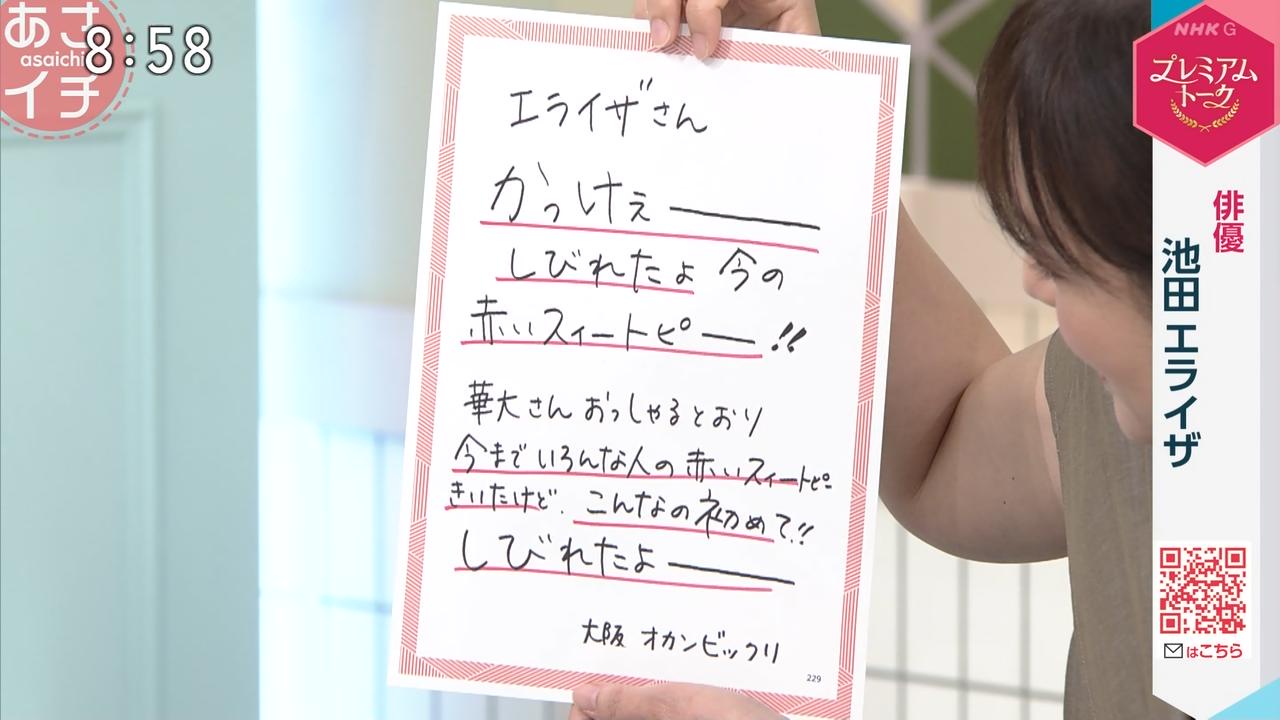 あさ
asaichi
イチ
8:58
エライザさん
かっけぇ――
しびれたよ 今の
赤いスィートピー!!
華大さん おっしゃるとおり
今まで いろんな人の 赤いスィートピー
きいたけど、こんなの初めて!!
しびれたよ――
大阪 オカンビックリ
229
NHK G
プレミアム
トーク
俳優
池田 エライザ
はこちら